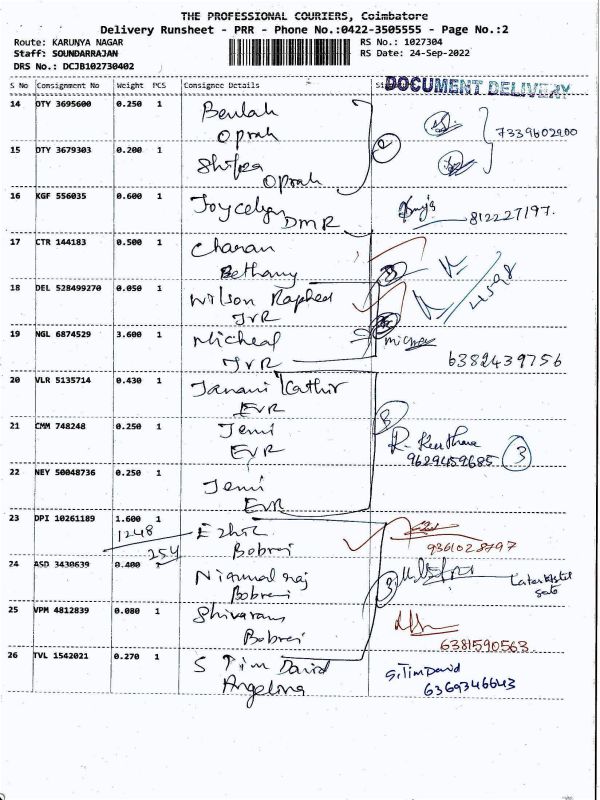 THE PROFESSIONAL COURIERS, Coimbatore
Delivery Runsheet - PRR - Phone No.:0422-3505555 - Page No.:2
Route: KARUNYA NAGAR RS No.: 1027304
Staff: SOUNDARRAJAN RS Date: 24-Sep-2022
DRS No.: DCJB102730402
S No Consignment No Weight PCS Consignee Details DOCUMENT DELIVERY
14 OTY 3695600 0.250 1 Beulah
Oprah 7339602900
15 OTY 3679303 0.200 1 Shifra
Oprah
16 KGF 556035 0.600 1 Joycelyn
DMR 812227197.
17 CTR 144183 0.500 1 Charan
Bethany
18 DEL 528499270 0.050 1 Wilson Rapheal
JVR
19 NGL 6874529 3.600 1 Micheal
JVR 6382439756
20 VLR 5135714 0.430 1 Janani Kathir
EVR
21 CMM 748248 0.250 1 Jemi
EVR 9629459685 3
22 NEY 50048736 0.250 1 Jemi
EVR
23 DPI 10261189 1.600 1 Ezhil
1248 Bobrei 9361028797
254
24 ASD 3430639 0.400 Nirumal raj
Bobrei
25 VPM 4812839 0.080 1 Shivaram
Bobrei 6381590563.
26 TVL 1542021 0.270 1 S Tim David S.Tim David
Angelina 6369346643